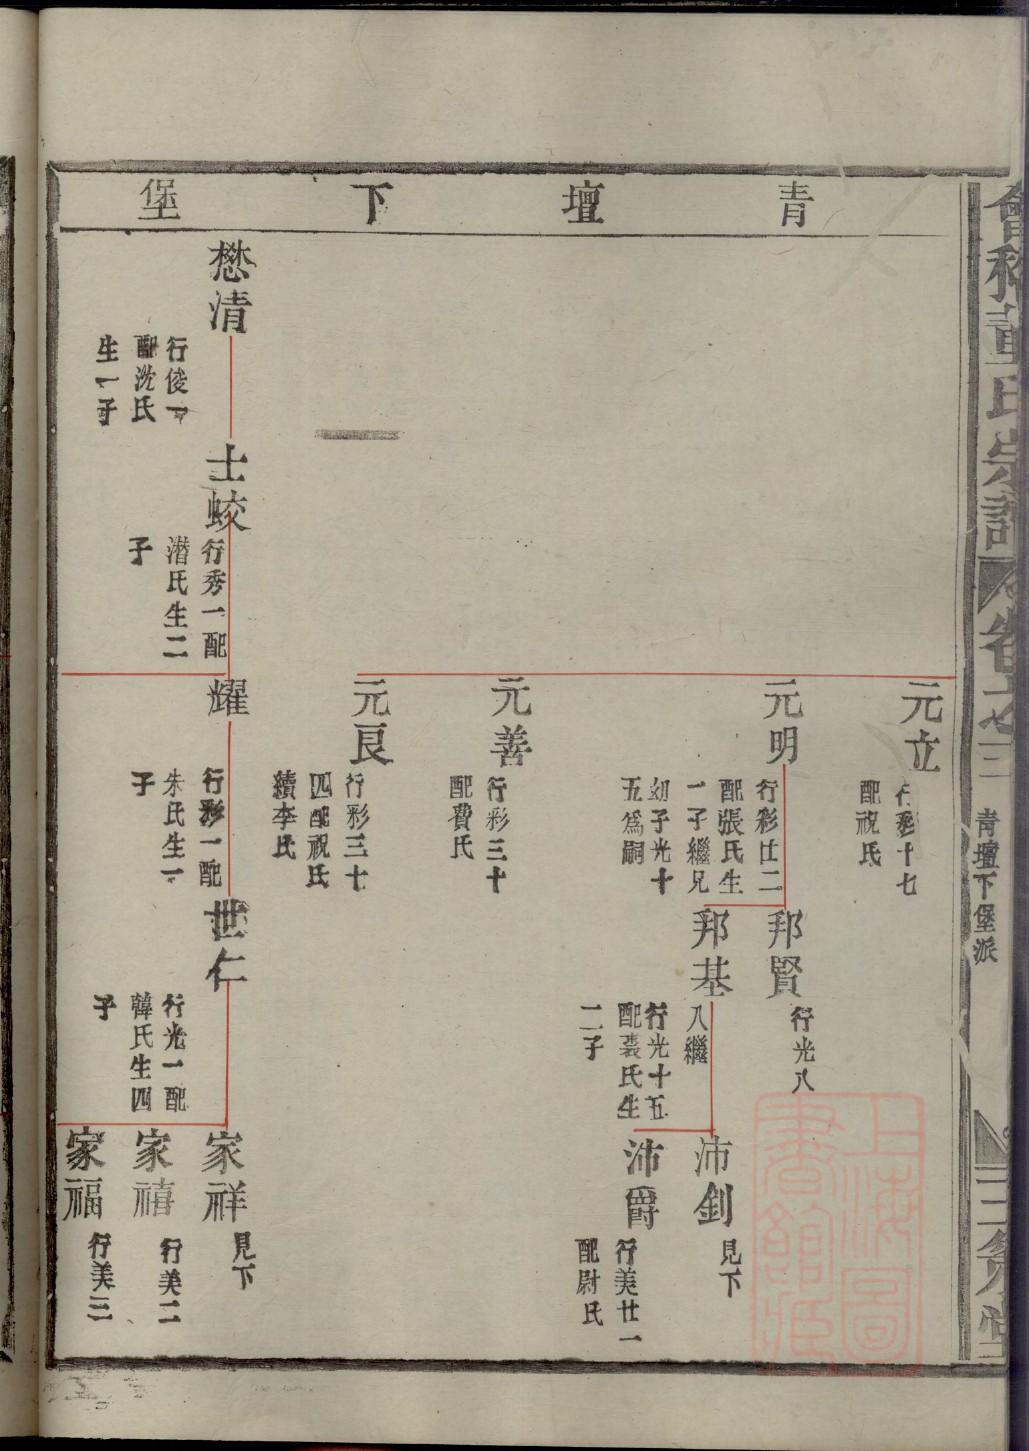 會稽董氏宗譜
卷之三
青壇下堡派
三策堂
青壇下堡
元立
行彩十七
配祝氏
元明
行彩廿二
配張氏生
一子繼兄
幼子光十
五爲嗣
邦賢
行光八
邦基
入繼
行光十五
配裘氏生
二子
沛釗
見下
沛爵
行美廿一
配尉氏
元善
行彩三十
配費氏
元良
行彩三十
四配祝氏
續李氏
懋清
行俊一
配沈氏
生一子
士蛟
行秀一配
潛氏生二
子
耀
行彩一配
朱氏生一
子
世仁
行光一配
韓氏生四
子
家祥
見下
家禧
行美二
家福
行美三
上海圖書館藏